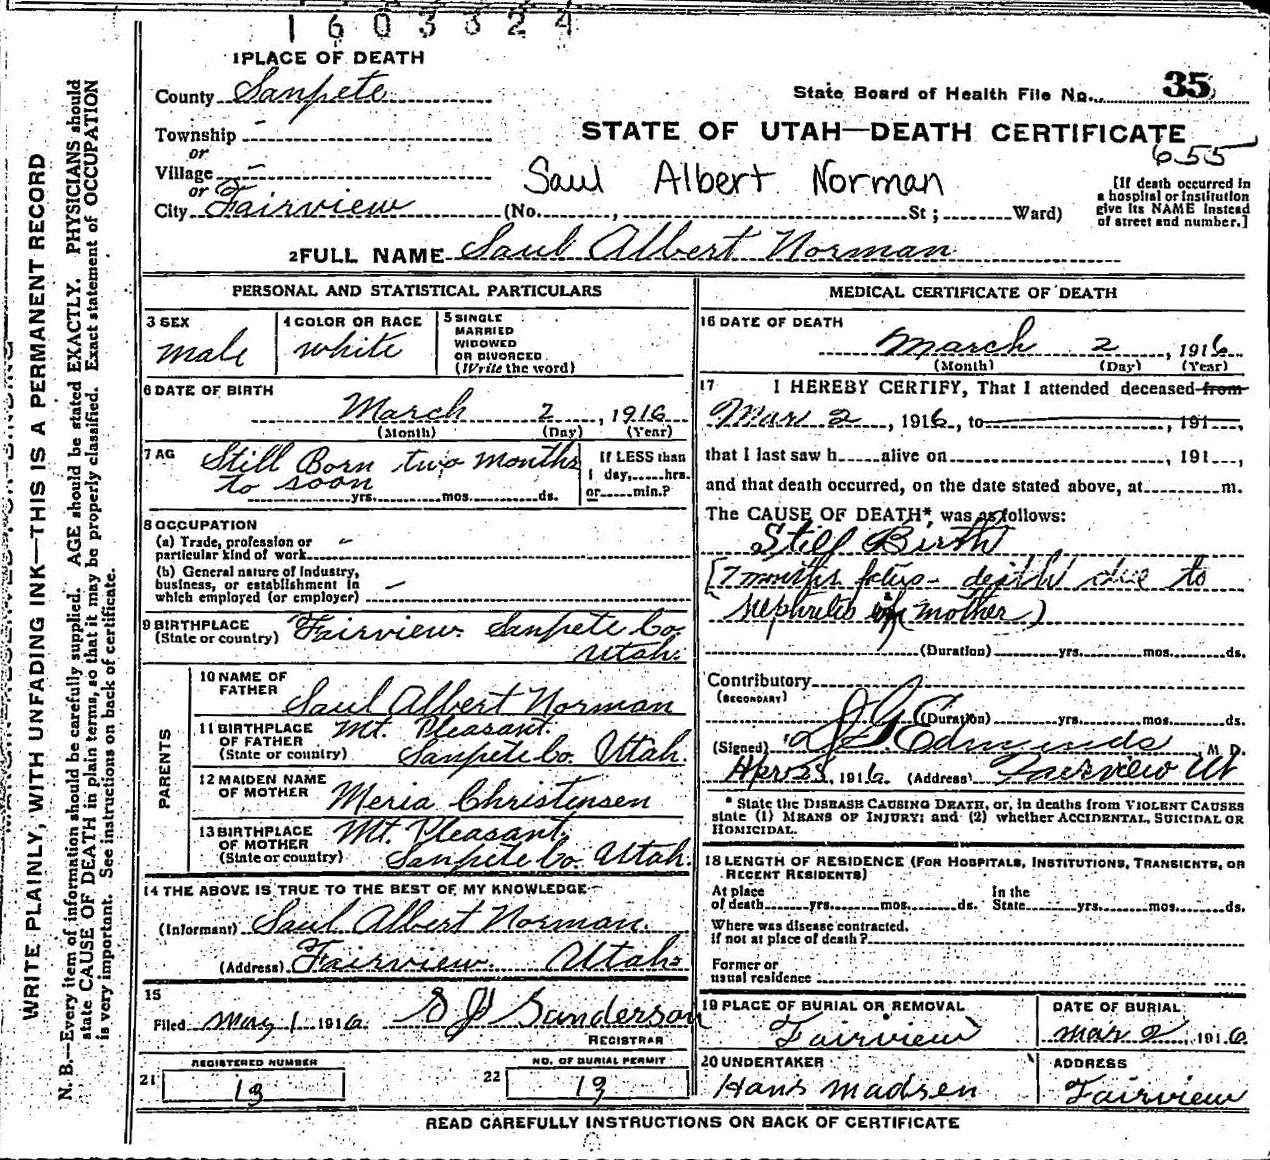 1603324
1 PLACE OF DEATH
County Sanpete
State Board of Health File No. 35
Township -
or
STATE OF UTAH—DEATH CERTIFICATE
655
Village -
or
Saul Albert Norman
[If death occurred in
a hospital or institution
give its NAME instead
of street and number.]
City Fairview (No. , St ; Ward)
2 FULL NAME Saul Albert Norman
PERSONAL AND STATISTICAL PARTICULARS
3 SEX
male
4 COLOR OR RACE
white
5 SINGLE
MARRIED
WIDOWED
OR DIVORCED
(Write the word)
6 DATE OF BIRTH
March 2, 1916
(Month) (Day) (Year)
7 AG Still Born two months
to soon
yrs. mos. ds.
If LESS than
1 day, hrs.
or min.?
8 OCCUPATION
(a) Trade, profession or
particular kind of work -
(b) General nature of industry,
business, or establishment in
which employed (or employer) -
9 BIRTHPLACE
(State or country) Fairview Sanpete Co.
Utah.
PARENTS
10 NAME OF
FATHER
Saul Albert Norman
11 BIRTHPLACE
OF FATHER
(State or country)
Mt. Pleasant.
Sanpete Co. Utah.
12 MAIDEN NAME
OF MOTHER Meria Christensen
13 BIRTHPLACE
OF MOTHER
(State or country)
Mt. Pleasant.
Sanpete Co. Utah.
14 THE ABOVE IS TRUE TO THE BEST OF MY KNOWLEDGE
(Informant) Saul Albert Norman.
(Address) Fairview. Utah
15
Filed May 1 1916. S J Sanderson
REGISTRAR
REGISTERED NUMBER
21 13
NO. OF BURIAL PERMIT
22 13
MEDICAL CERTIFICATE OF DEATH
16 DATE OF DEATH
March 2, 1916
(Month) (Day) (Year)
17 I HEREBY CERTIFY, That I attended deceased from
Mar 2, 1916, to 191 ,
that I last saw h alive on , 191 ,
and that death occurred, on the date stated above, at m.
The CAUSE OF DEATH*, was as follows:
Still Birth
[7 months fetus - death due to
nephritis of mother)
(Duration) yrs. mos. ds.
Contributory
(SECONDARY)
(Duration) yrs. mos. ds.
(Signed) Edmunds M. D.
Apr 28, 1916 (Address) Fairview Ut
* State the DISEASE CAUSING DEATH, or, in deaths from VIOLENT CAUSES
state (1) MEANS OF INJURY; and (2) whether ACCIDENTAL, SUICIDAL OR
HOMICIDAL.
18 LENGTH OF RESIDENCE (FOR HOSPITALS, INSTITUTIONS, TRANSIENTS, OR
RECENT RESIDENTS)
At place
of death yrs. mos. ds.
In the
State yrs. mos. ds.
Where was disease contracted.
if not at place of death?
Former or
usual residence
19 PLACE OF BURIAL OR REMOVAL
Fairview
DATE OF BURIAL
Mar 2, 1916.
20 UNDERTAKER
Hans Madsen
ADDRESS
Fairview
READ CAREFULLY INSTRUCTIONS ON BACK OF CERTIFICATE
WRITE PLAINLY, WITH UNFADING INK—THIS IS A PERMANENT RECORD
N. B.—Every item of information should be carefully supplied. AGE should be stated EXACTLY. PHYSICIANS should
state CAUSE OF DEATH in plain terms, so that it may be properly classified. Exact statement of OCCUPATION
is very important. See instructions on back of certificate.